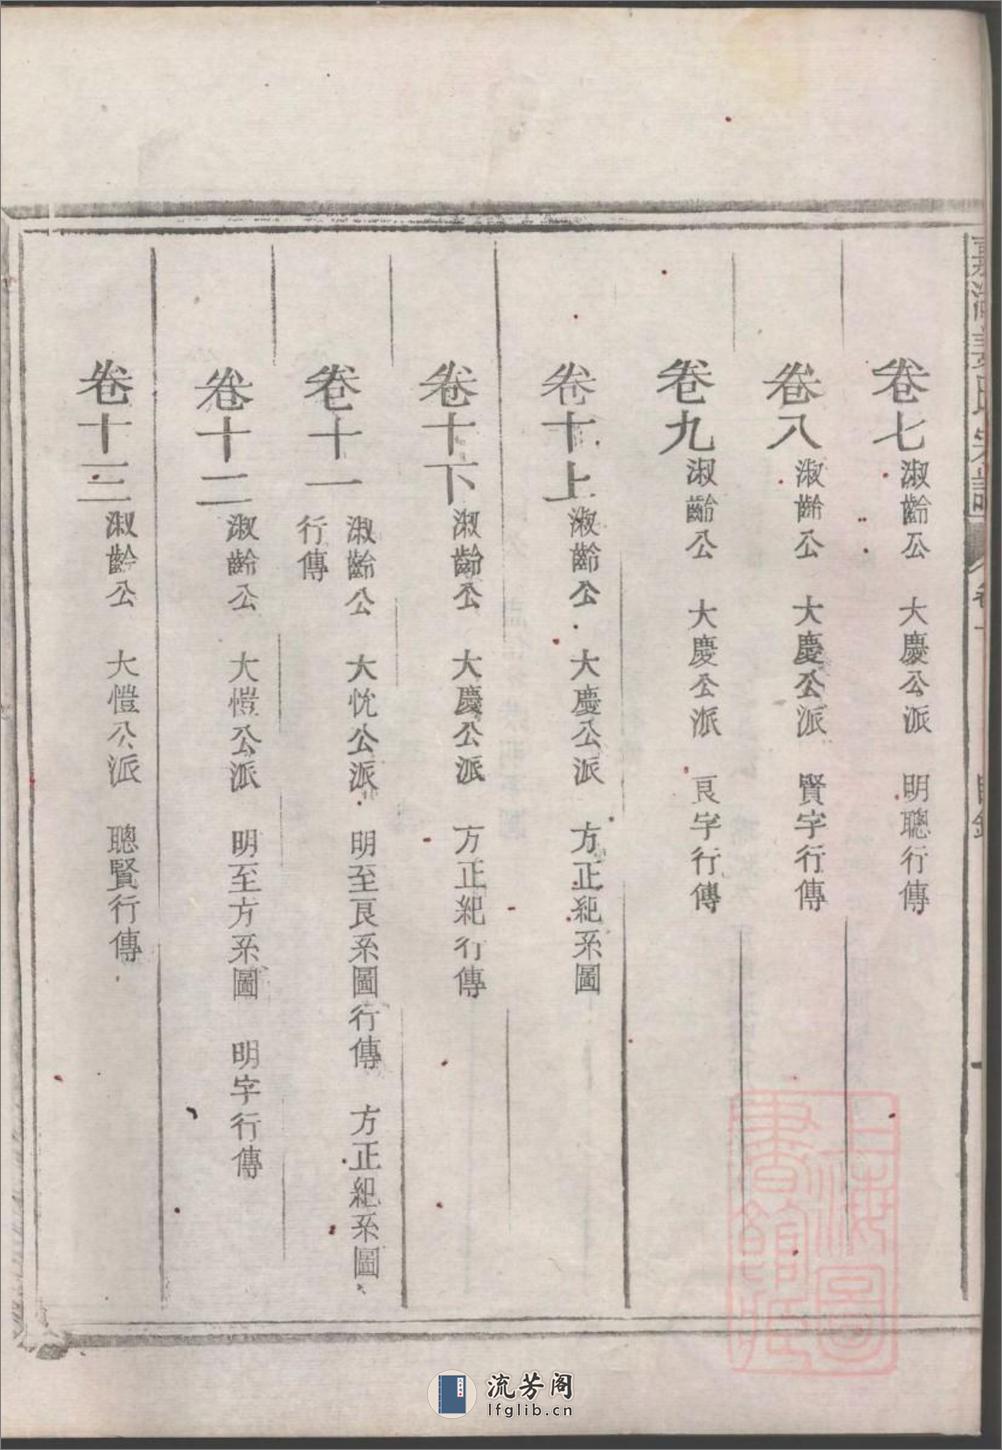 卷七 淑齡公 大慶公派 明聰行傳
卷八 淑齡公 大慶公派 賢字行傳
卷九 淑齡公 大慶公派 良字行傳
卷十上 淑齡公 大慶公派 方正紀系圖
卷十下 淑齡公 大慶公派 方正紀行傳
卷十一 淑齡公 大忱公派 明至良系圖行傳 方正紀系圖
行傳
卷十二 淑齡公 大愷公派 明至方系圖 明字行傳
卷十三 淑齡公 大愷公派 聰賢行傳
上海圖書館藏
流芳阁
lfglib.cn